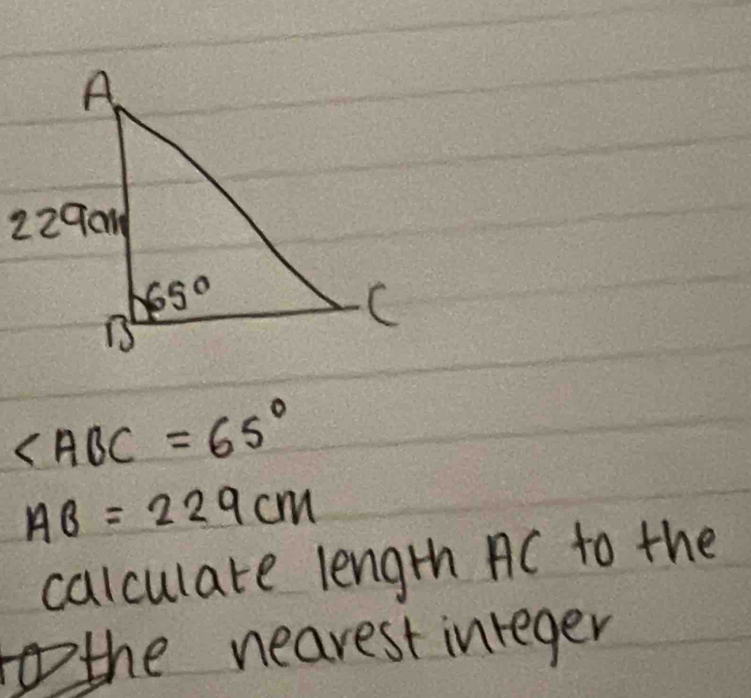 A
229cm
65°
B
C
<ABC = 65°
AB = 229cm
calculate length AC to the
the nearest integer